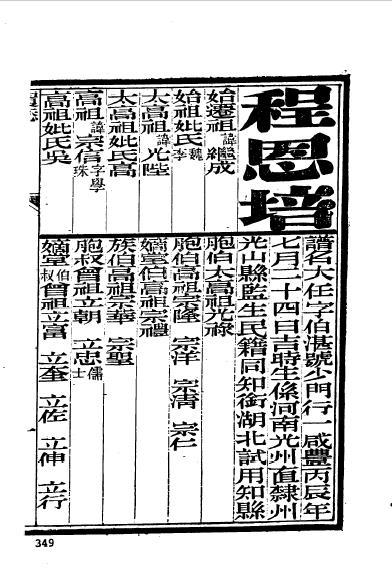 程恩培
譜名大任字伯湛號少門行一咸豐丙辰年
七月二十四日吉時生係河南光州直隸州
光山縣監生民籍同知銜湖北試用知縣
始遷祖諱繼成
始祖妣氏魏李
太高祖諱光陛
太高祖妣氏高
高祖諱宗信字學珠
高祖妣氏吳
胞伯太高祖光祿
胞伯高祖宗隆 宗洋 宗淸 宗仁
嫡堂伯高祖宗禮
族伯高祖宗華 宗聖
胞叔曾祖立朝 立忠儒士
嫡堂伯叔曾祖立富 立奎 立佐 立伸 立行
349